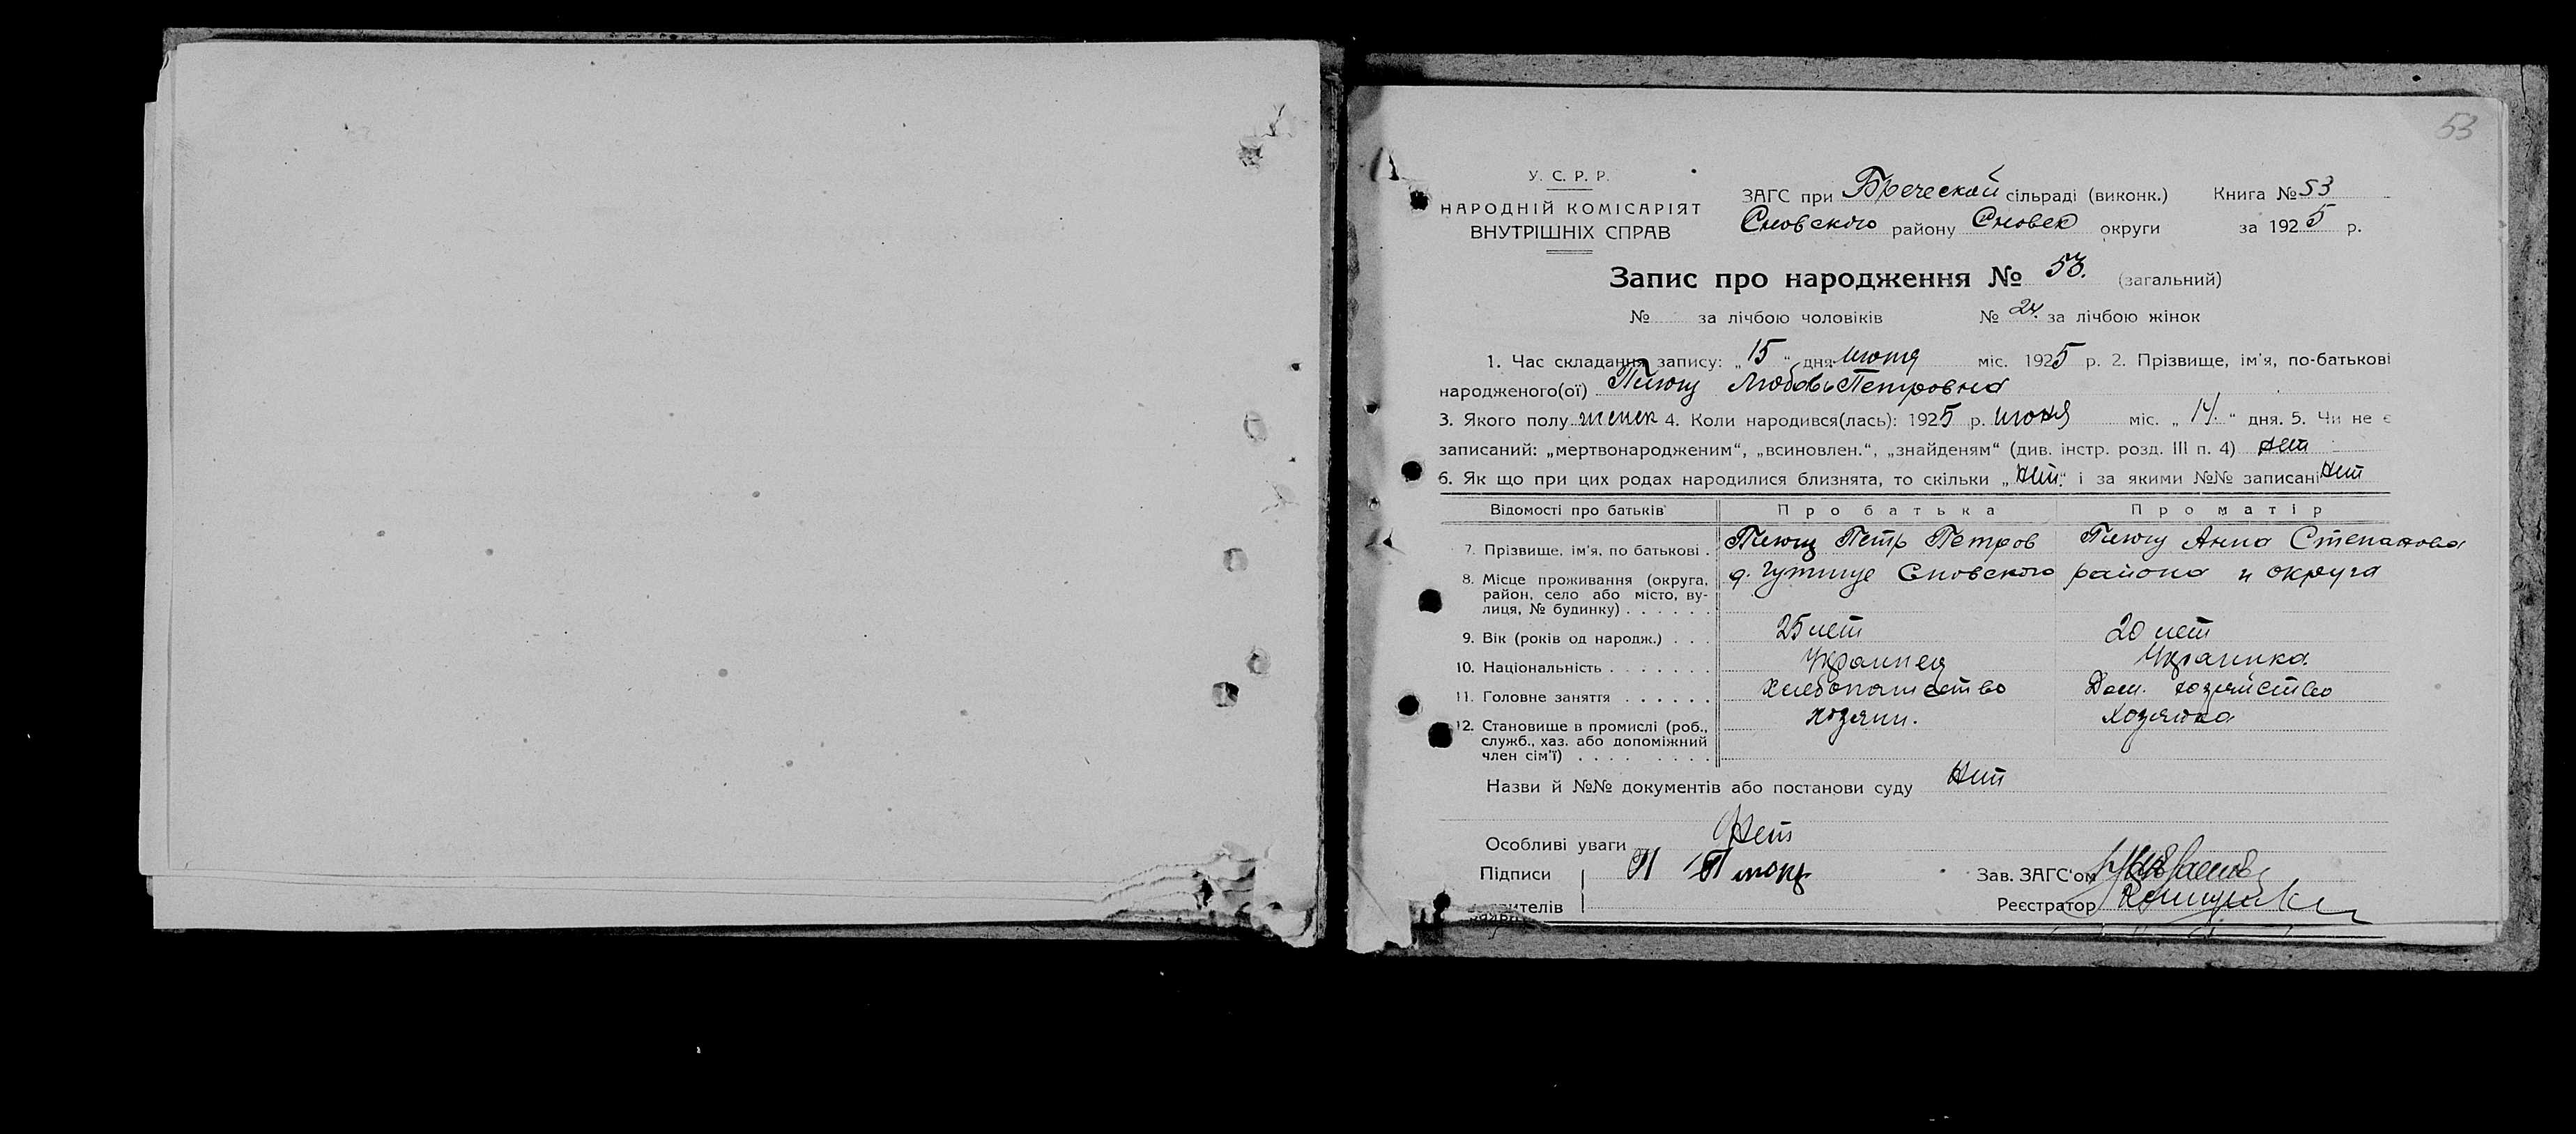 53
У. С. Р. Р.
НАРОДНІЙ КОМІСАРІЯТ
ВНУТРІШНІХ СПРАВ
ЗАГС при Бреческой сільраді (виконк.) Книга № 53
Сновского району Сновск округи за 1925 р.
Запис про народження № 53. (загальний)
№ за лічбою чоловіків № 24. за лічбою жінок
1. Час складання запису: „15“ дня міс. 1925 р. 2. Прізвище, ім'я, по-батькові
народженого(ої) Плющ Любовь Петровна
3. Якого полу женск 4. Коли народився(лась): 1925 р. июня міс. „14.“ дня. 5. Чи не є
записаний: „мертвонародженим“, „всиновлен.“, „знайденям“ (див. інстр. розд. III п. 4) нет
6. Як що при цих родах народилися близнята, то скільки „нет.“ і за якими №№ записані нет
Відомості про батьків Про батька Про матір
7. Прізвище, ім'я, по батькові . Плющ Петр Петров Плющ Анна Степанова
8. Місце проживання (округа, д. Гутище Сновского района и округа
район, село або місто, ву-
лиця, № будинку) . . . . . .
9. Вік (років од народж.) . . . 25 лет 20 лет
10. Національність . . . . . . . Украинец Украинка
11. Головне заняття . . . . . . Хлебопашество Дом. хозяйство
12. Становище в промислі (роб., хозяин. хозяйка
служб., хаз. або допоміжний
член сім'ї) . . . . . . . .
Назви й №№ документів або постанови суду нет
Особливі уваги нет
Підписи П Плющ Зав. ЗАГС'ом
Реєстратор